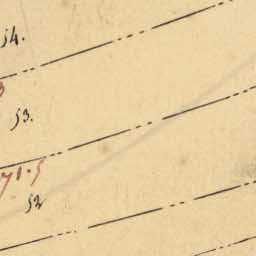 54.
53.
71.5
52